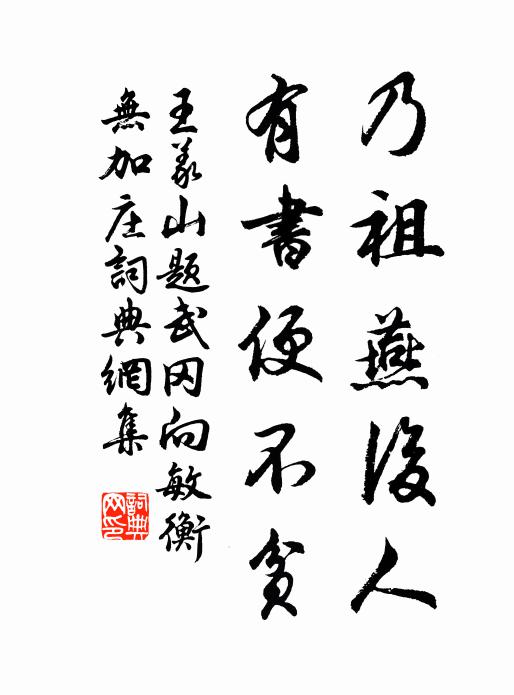 乃祖燕後人
有書便不貧
王義山題武冈向敏衡
無加庄詞典網集
詞典网印